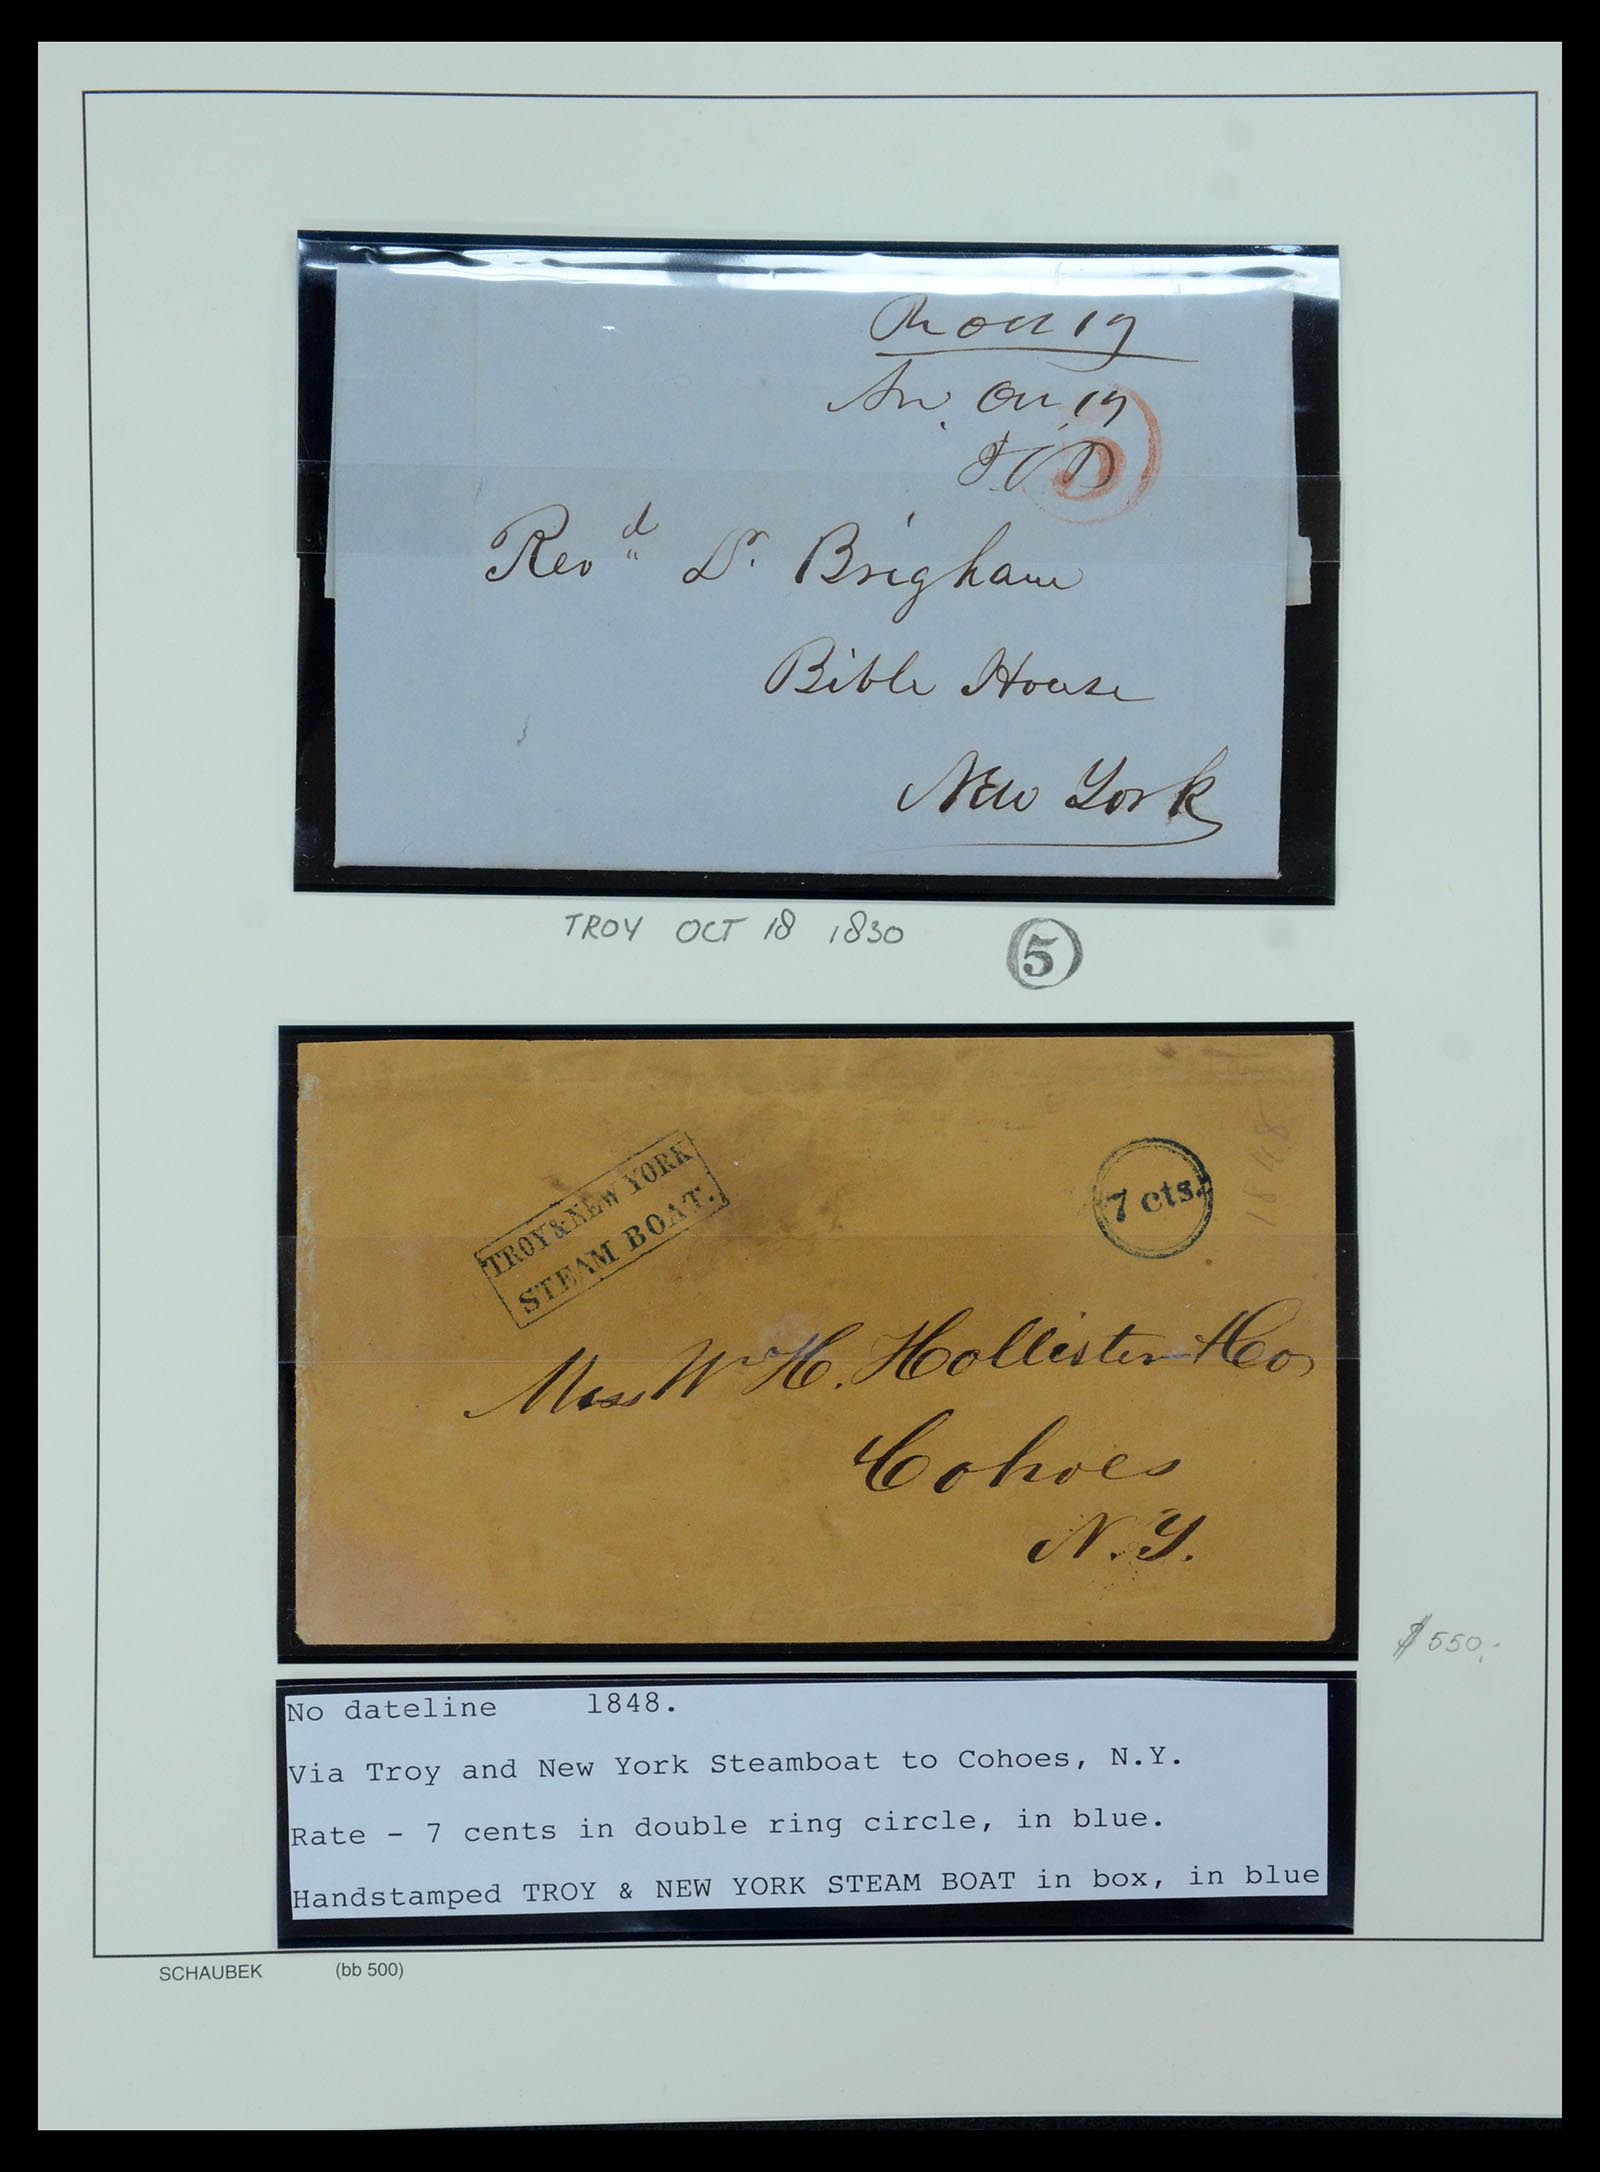 Oct 19
An. Oct. 19
5
Rev.d Dr. Brigham
Bible House
New York
TROY OCT 18 1830
5
TROY & NEW YORK
STEAM BOAT.
7 cts.
1848
Mess Wm H. Hollister & Co
Cohoes
N.Y.
$550.-
No dateline 1848.
Via Troy and New York Steamboat to Cohoes, N.Y.
Rate - 7 cents in double ring circle, in blue.
Handstamped TROY & NEW YORK STEAM BOAT in box, in blue
SCHAUBEK (bb 500)